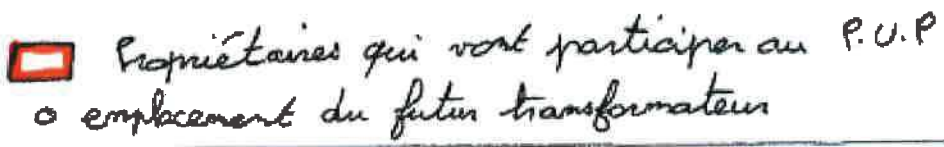 Propriétaires qui vont participer au P.U.P
o emplacement du futur transformateur